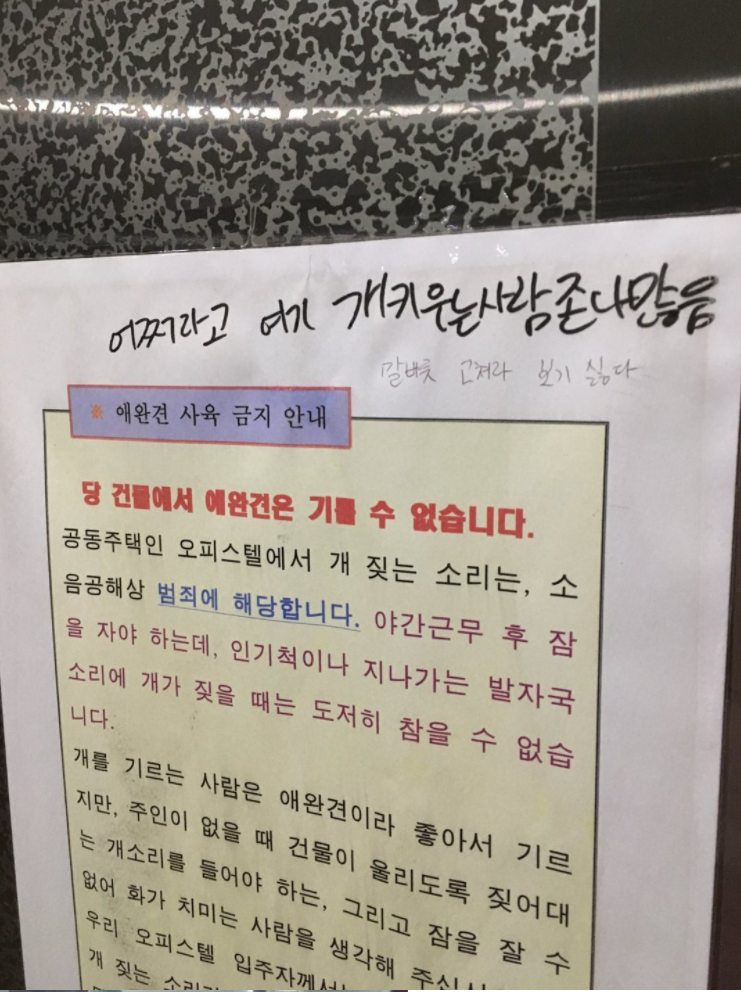 어쩌라고 여기 개키우는사람존나많음
말버릇 고쳐라 보기 싫다
※ 애완견 사육 금지 안내
당 건물에서 애완견은 기를 수 없습니다.
공동주택인 오피스텔에서 개 짖는 소리는, 소
음공해상 범죄에 해당합니다. 야간근무 후 잠
을 자야 하는데, 인기척이나 지나가는 발자국
소리에 개가 짖을 때는 도저히 참을 수 없습
니다.
개를 기르는 사람은 애완견이라 좋아서 기르
지만, 주인이 없을 때 건물이 울리도록 짖어대
는 개소리를 들어야 하는, 그리고 잠을 잘 수
없어 화가 치미는 사람을 생각해
우리 오피스텔 입주자께서는
개 짖는